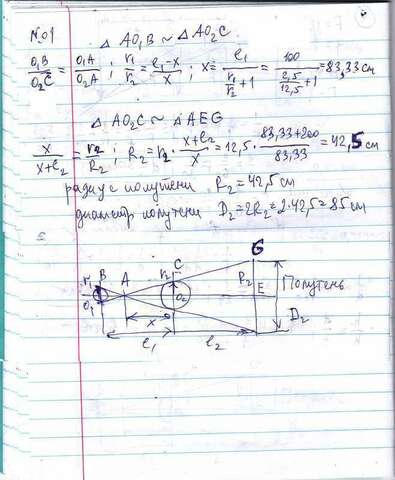 №01
△ AO₁B ~ △ AO₂C.
O₁B/O₂C = O₁A/O₂A ; r₁/r₂ = (l₁-x)/x ; x = l₁/(r₁/r₂+1) = 100/(2,5/12,5+1) = 83,33 см
△ AO₂C ~ △ AEG
x/(x+l₂) = r₂/R₂ ; R₂ = r₂ · (x+l₂)/x = 12,5 · (83,33+200)/83,33 = 42,5 см
радиус полутени R₂ = 42,5 см
диаметр полутени D₂ = 2R₂ = 2·42,5 = 85 см
G
r₁ B A r₂ C R₂ Полутень
O₁ O₂ E
x D₂
l₁ l₂